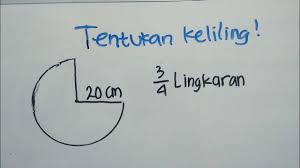 Tentukan keliling!
20 cm
3/4 Lingkaran